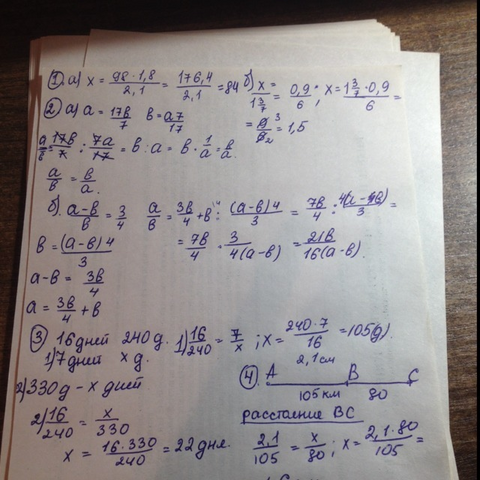 1. а) x = 98·1,8 / 2,1 = 176,4 / 2,1 = 84 б) x / 1 3/7 = 0,9 / 6 ; x = 1 3/7 · 0,9 / 6 =
= 9 3 / 6 2 = 1,5
2. а) a = 17в / 7 в = a7 / 17
a/в 17в / 7 : 7a / 17 = в : a = в · 1/a = в/a.
a/в = в/a.
б). a-в / в = 3/4 a/в = 3в/4 + в : (a-в) 4 / 3 = 7в/4 : 4(a-в) / 3 =
в = (a-в) 4 / 3 = 7в/4 · 3 / 4(a-в) = 21в / 16(a-в).
a-в = 3в/4
a = 3в/4 + в
3 16 дней 240 д. 1) 16/240 = 7/x ; x = 240·7 / 16 = 105(д).
1) 7 дней x д.
2) 330 д - x дней
2) 16/240 = x/330
x = 16·330 / 240 = 22 дня.
4. A B C
2,1 см
105 км 80
расстояние BC
2,1 / 105 = x / 80 ; x = 2,1·80 / 105 =